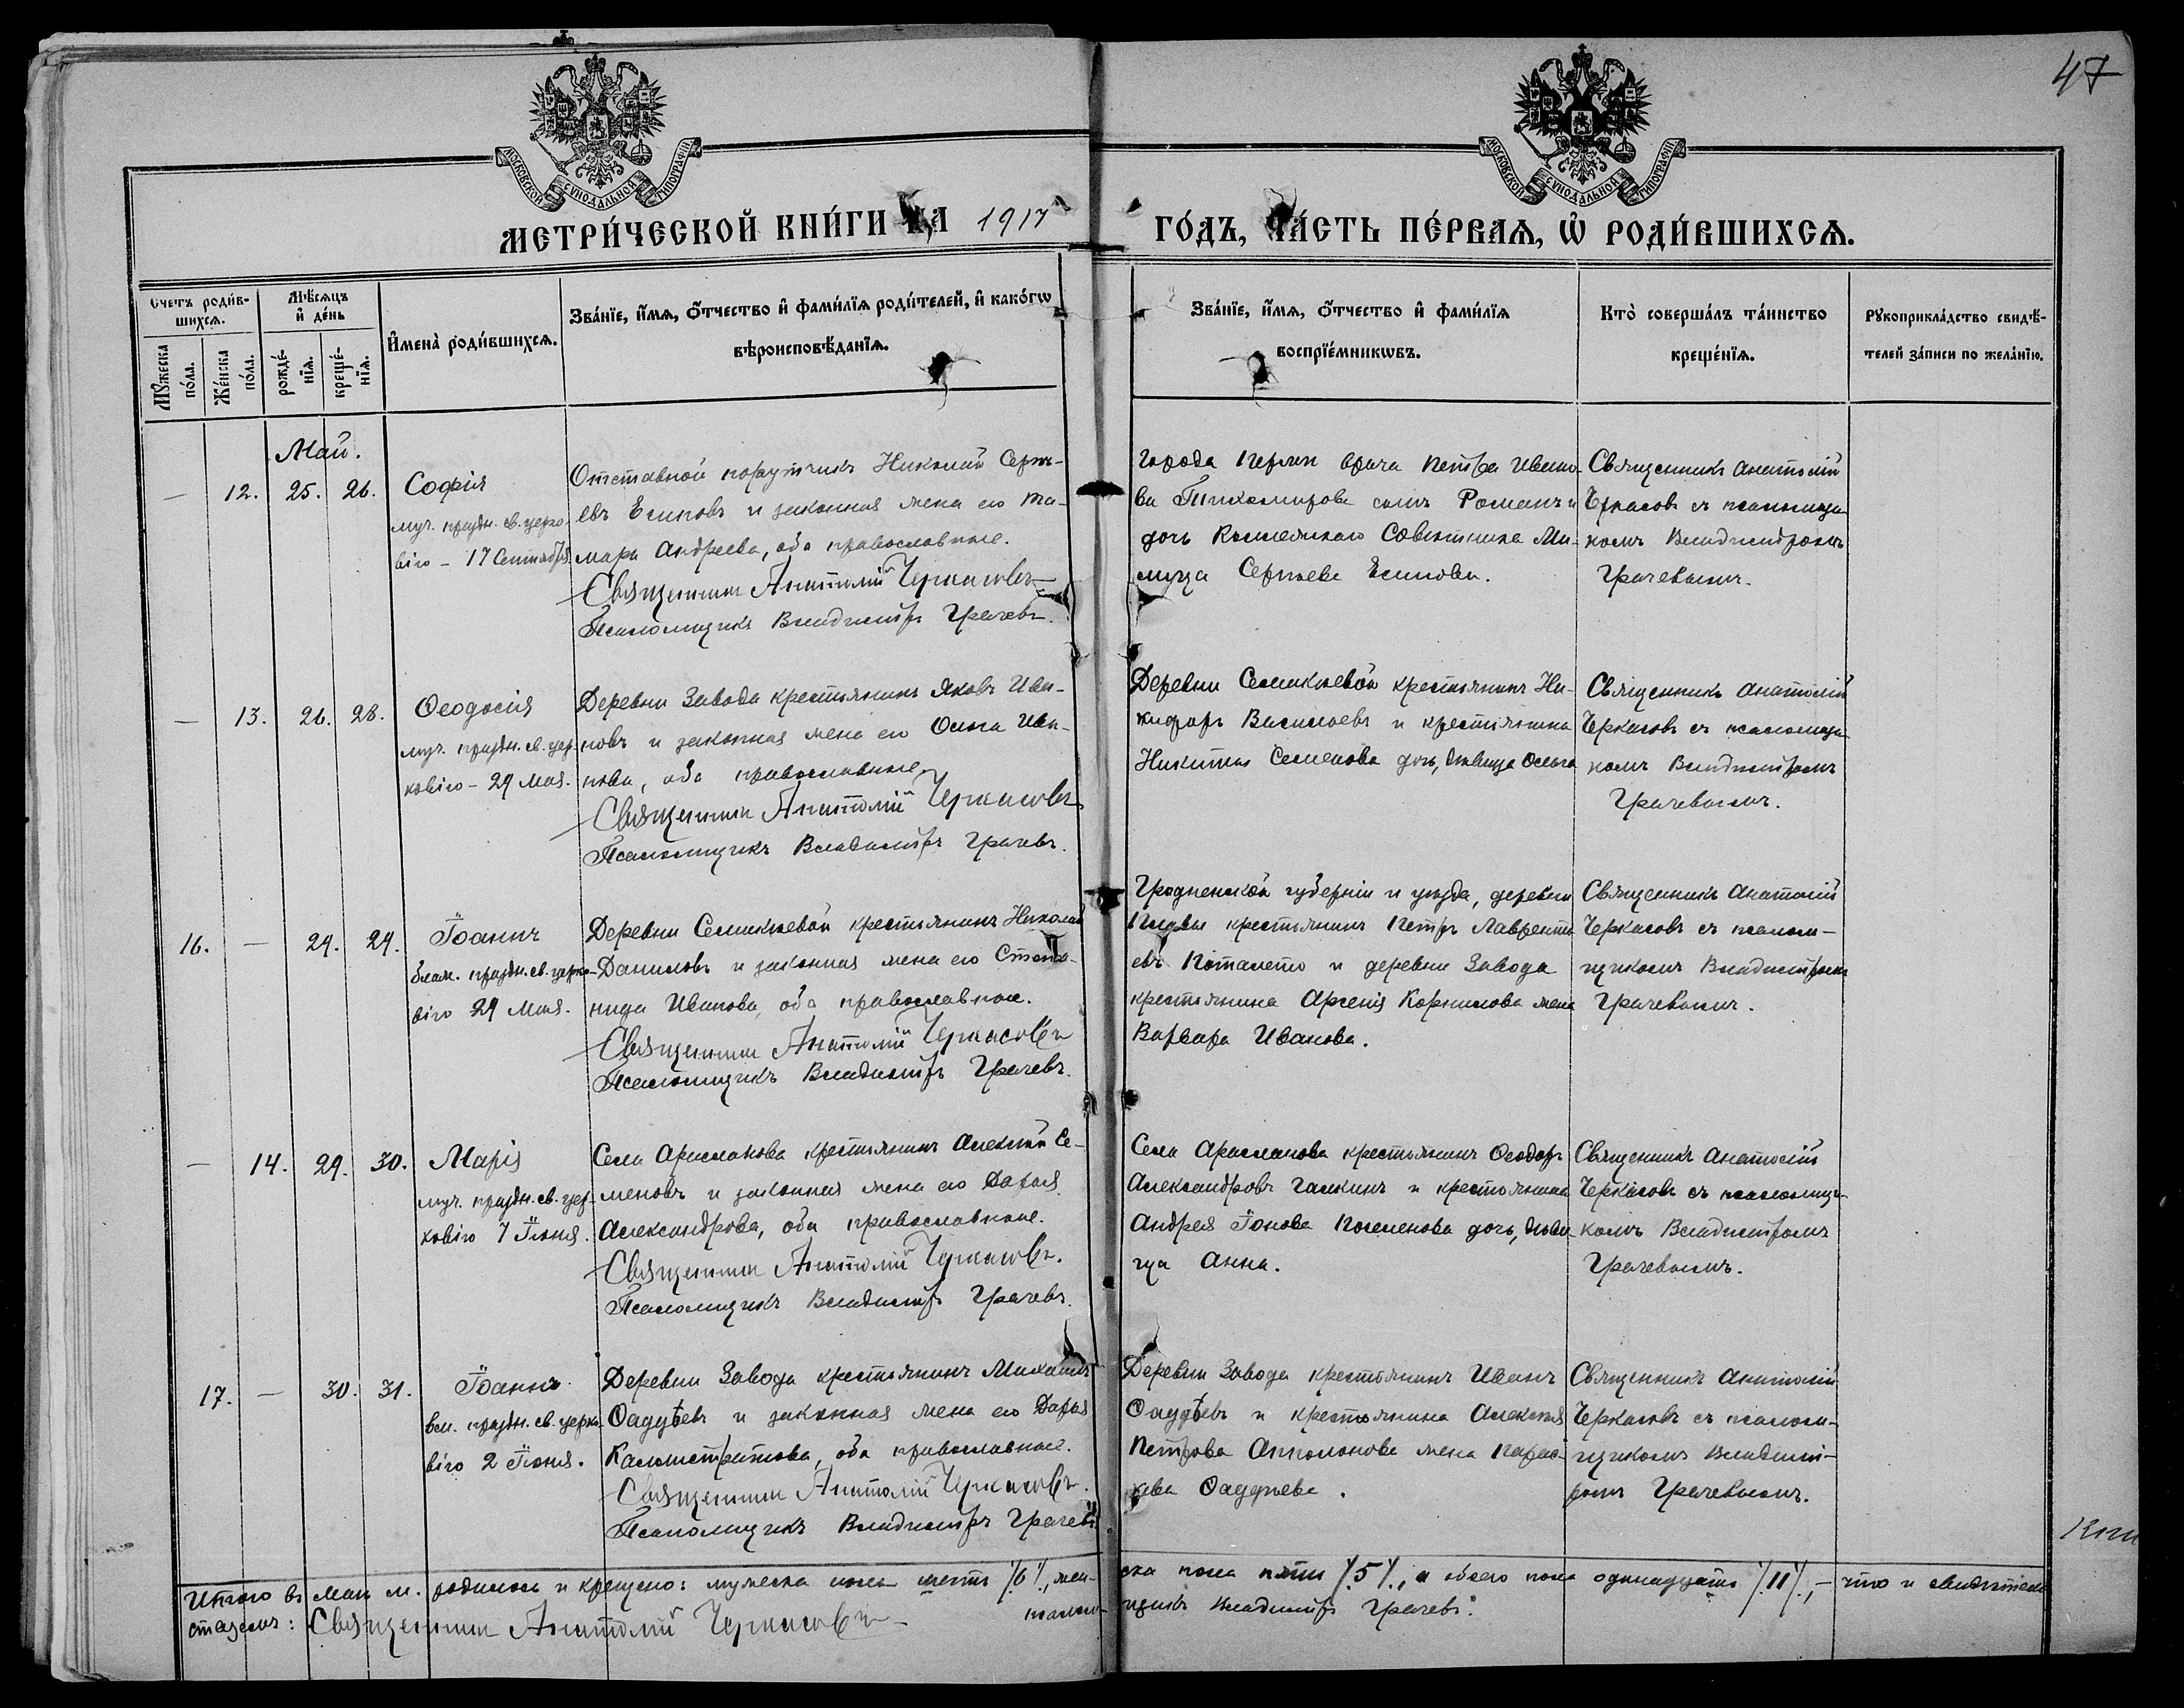 47
МОСКОВСКОЙ СУНОДАЛЬНОЙ ТИПОГРАФІИ
МОСКОВСКОЙ СУНОДАЛЬНОЙ ТИПОГРАФІИ
МЕТРИ́ЧЕСКОЙ КНИ́ГИ НА 1917
ГО́ДЪ, ЧА́СТЬ ПЕ́РВАѦ, Ѡ҆ РОДИ́ВШИХСѦ.
Счетъ роди́в-
шихсѧ.
Мꙋ́жеска
по́ла.
Же́нска
по́ла.
Мѣ́сѧцъ
и҆ де́нь
рожде́-
нїѧ.
креще́-
нїѧ.
И҆мена̀ роди́вшихсѧ.
Зва́нїе, и҆́мѧ, ѻ҆́тчество и҆ фами́лїѧ роди́телей, и҆ како́гѡ
вѣроисповѣ́данїѧ.
Зва́нїе, и҆́мѧ, ѻ҆́тчество и҆ фами́лїѧ
воспрїе́мникѡвъ.
Кто̀ соверша́лъ та́инство
креще́нїѧ.
Рꙋкоприкла́дство свидѣ́-
телей за́писи по жела́нїю.
Май.
— 12. 25. 26.
Софія
муч. праздн. св. церко-
вію - 17 Сентября
Отставной поручикъ Николай Серге-
евъ Есиповъ и законная жена его Та-
мара Андреева, оба православные.
Священникъ Анатолій Черкасовъ
Псаломщикъ Владиміръ Грачевъ.
Города врача Петра Ивано-
ва Тихомирова сынъ Романъ и
дочь Коллежскаго Совѣтника Ми-
лица Сергѣева Есипова.
Священникъ Анатолій
Черкасовъ съ псаломщи-
комъ Владиміромъ
Грачевымъ.
— 13. 26. 28.
Ѳеодосія
муч. праздн. св. цер-
ковію - 29 Мая.
Деревни Завода крестьянинъ Яковъ Ива-
новъ и законная жена его Ольга Ива-
нова, оба православные.
Священникъ Анатолій Черкасовъ
Псаломщикъ Владиміръ Грачевъ.
Деревни Семикѣевой крестьянинъ Ни-
кифоръ Васильевъ и крестьянина
Никиты Семенова дочь, дѣвица Ольга
Священникъ Анатолій
Черкасовъ съ псаломщи-
комъ Владиміромъ
Грачевымъ.
16. — 29. 29.
Іоаннъ
блаж. праздн. св. церко-
вію 29 Мая.
Деревни Семикѣевой крестьянинъ Николай
Даниловъ и законная жена его Степа-
нида Иванова, оба православные.
Священникъ Анатолій Черкасовъ
Псаломщикъ Владиміръ Грачевъ.
Гродненской губерніи и уѣзда, деревни
крестьянинъ Петръ Лавренть-
евъ и деревни Завода
крестьянина Арсенія Корнилова жена
Варвара Иванова.
Священникъ Анатолій
Черкасовъ съ псалом-
щикомъ Владиміромъ
Грачевымъ.
— 14. 29. 30.
Марія
муч. праздн. св. цер-
ковію 7 Іюня.
Села Арисланова крестьянинъ Алексѣй Се-
меновъ и законная жена его Дарья
Александрова, оба православные.
Священникъ Анатолій Черкасовъ.
Псаломщикъ Владиміръ Грачевъ.
Села Арисланова крестьянинъ Ѳеодоръ
Александровъ Галкинъ и крестьянина
Андрея Іонова дочь, дѣви-
ца Анна.
Священникъ Анатолій
Черкасовъ съ псаломщи-
комъ Владиміромъ
Грачевымъ.
17. — 30. 31.
Іоаннъ
вел. праздн. св. церко-
вію 2 Іюня.
Деревни Завода крестьянинъ Михаилъ
Ѳаддѣевъ и законная жена его Дарья
Каллистратова, оба православные.
Священникъ Анатолій Черкасовъ.
Псаломщикъ Владиміръ Грачевъ
Деревни Завода крестьянинъ Иванъ
Ѳаддѣевъ и крестьянина Алексѣя
Петрова Апполонова жена Парас-
кева Ѳаддѣева.
Священникъ Анатолій
Черкасовъ съ псалом-
щикомъ Владимі-
ромъ Грачевымъ.
Итого въ Маѣ м. родилось и крещено: мужеска пола шесть /.6./, жен-
ска пола пять /.5./, а обоего пола одинадцать /.11./, — что и свидѣтель-
ствуемъ: Священникъ Анатолій Черкасовъ
псалом-
щикъ Владиміръ Грачевъ.